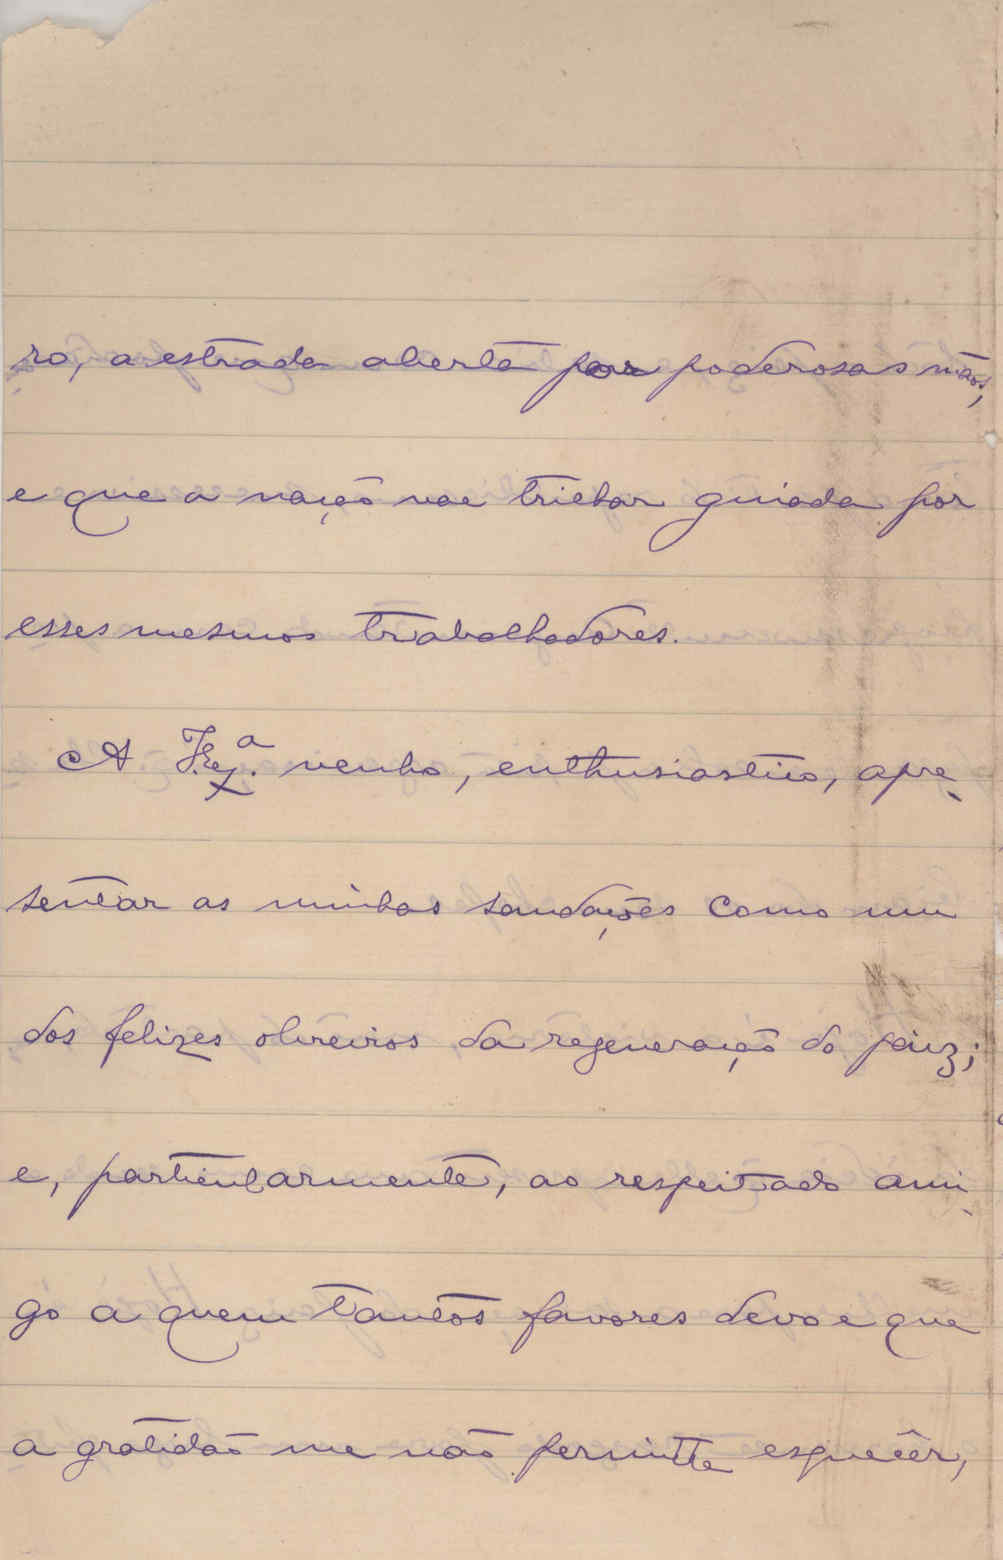 ro, a estrada aberta por poderosas mãos,
e que a nação vae trilhar guiada por
esses mesmos trabalhadores.
A V. Ex.ª venho, enthusiastico, apre-
sentar as minhas saudações como um
dos felizes obreiros da regeneração do paiz;
e, particularmente, ao respeitado ami-
go a quem tantos favores devo e que
a gratidão me não permitte esquecêr,